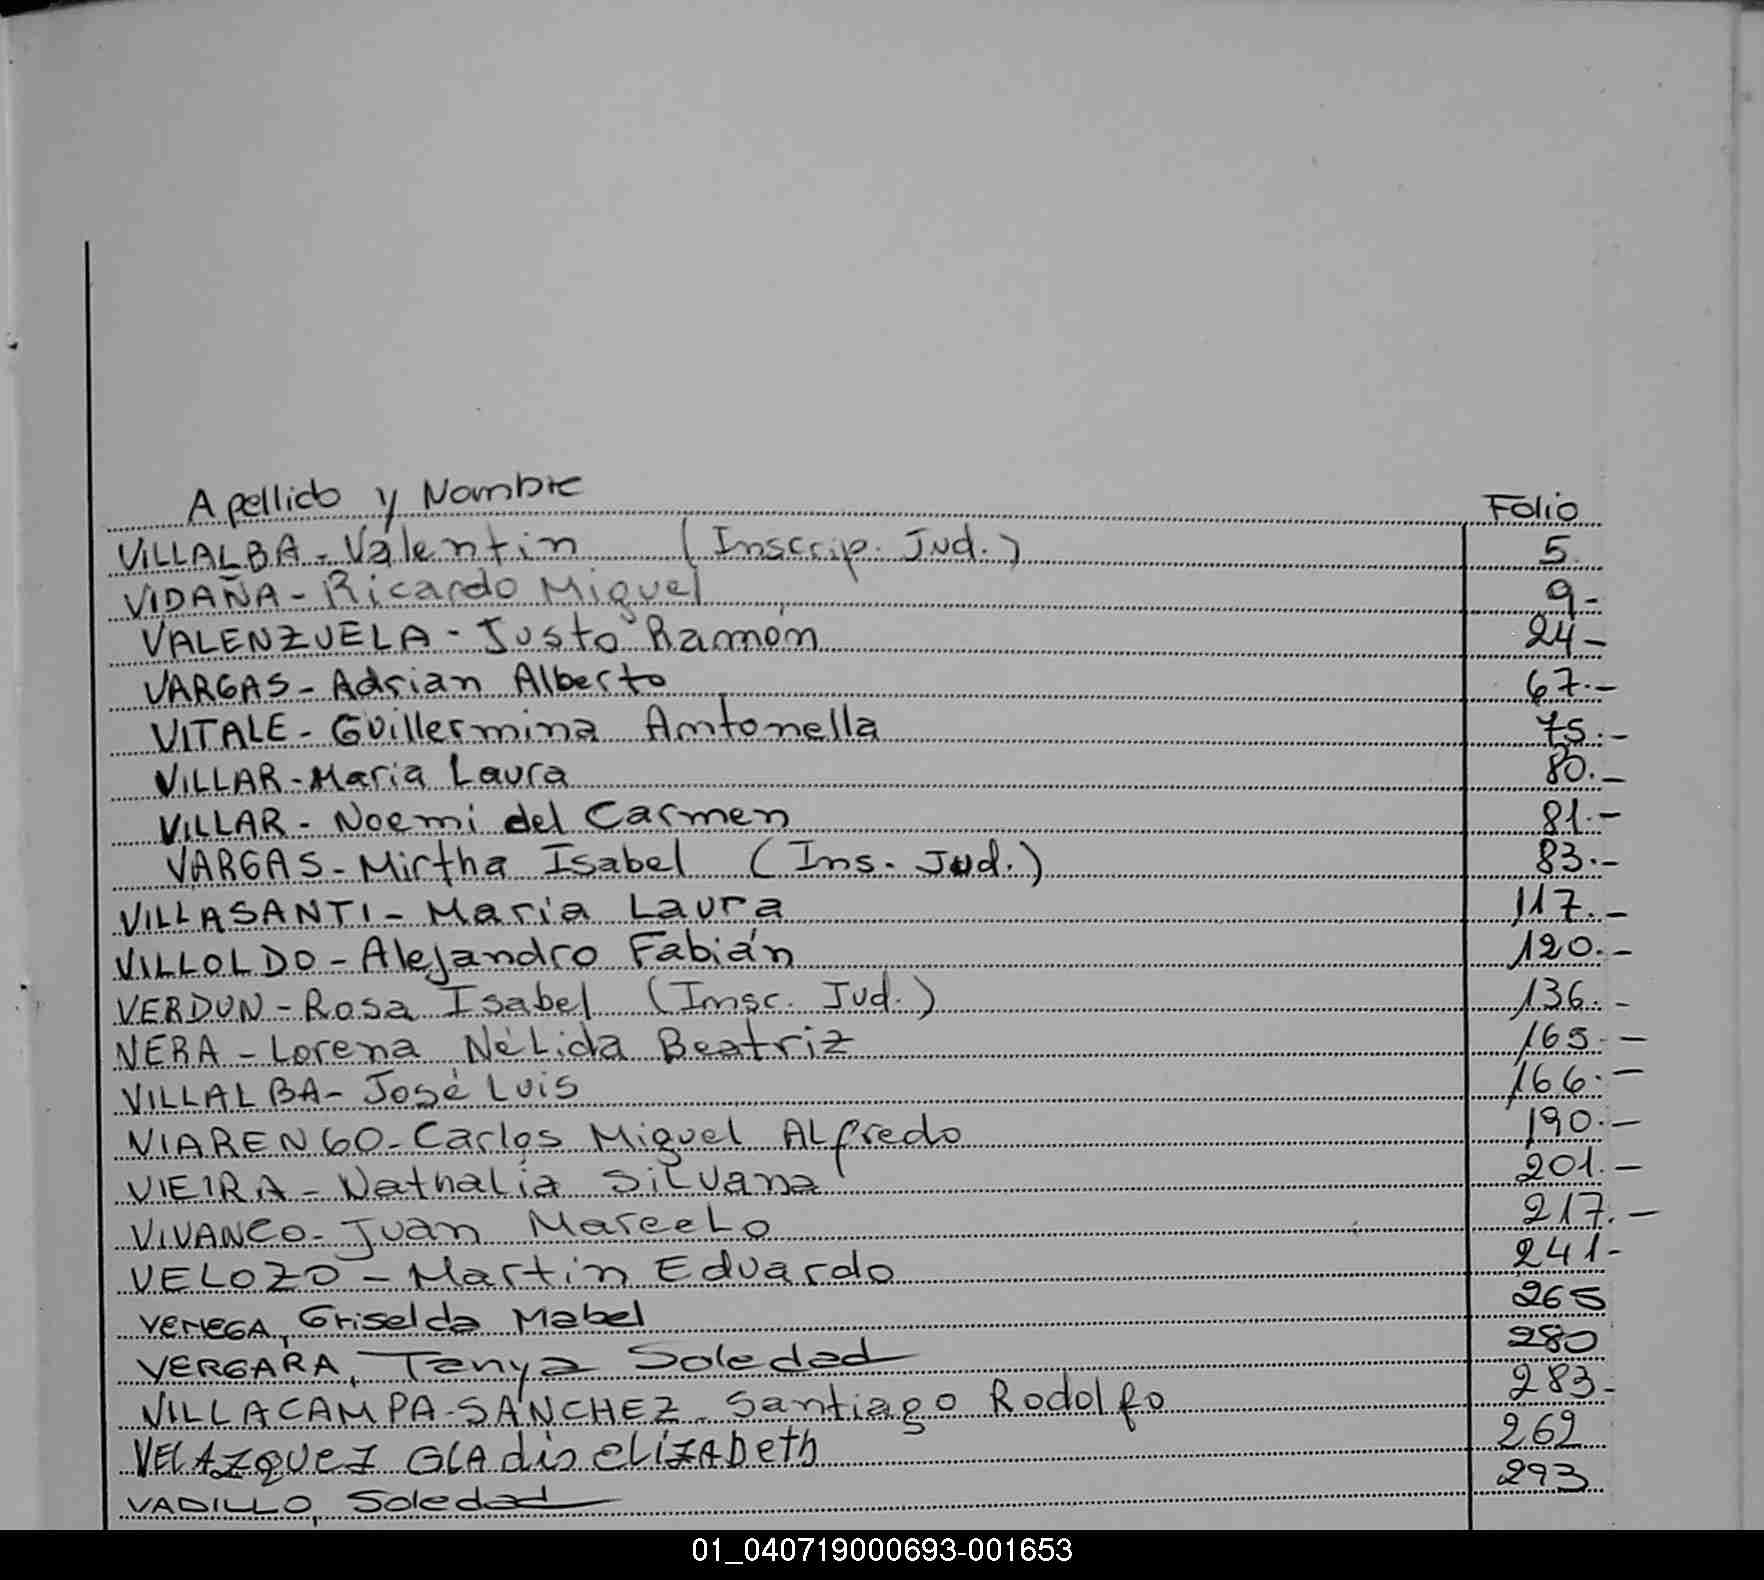 Apellido y Nombre Folio
VILLALBA - Valentin (Inscrip. Jud.) 5
VIDAÑA - Ricardo Miguel 9-
VALENZUELA - Justo Ramón 24-
VARGAS - Adrian Alberto 67.-
VITALE - Guillermina Antonella 75.-
VILLAR - Maria Laura 80.-
VILLAR - Noemi del Carmen 81.-
VARGAS - Mirtha Isabel (Ins. Jud.) 83.-
VILLASANTI - Maria Laura 117.-
VILLOLDO - Alejandro Fabián 120.-
VERDUN - Rosa Isabel (Insc. Jud.) 136.-
VERA - Lorena Nélida Beatriz 165.-
VILLALBA - José Luis 166.-
VIARENGO - Carlos Miguel Alfredo 190.-
VIEIRA - Nathalia Silvana 201.-
VIVANCO - Juan Marcelo 217.-
VELOZO - Martin Eduardo 241-
VENEGA, Griselda Mabel 265
VERGARA, Tanya Soledad 280
VILLACAMPA-SANCHEZ - Santiago Rodolfo 283-
VELAZQUEZ GLAdis eLiZABeth 262
VADILLO, Soledad 293
01_040719000693-001653